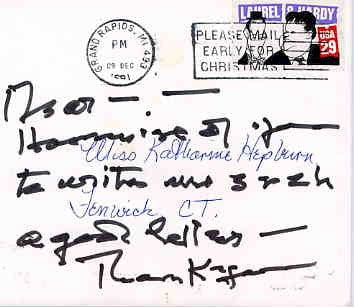 LAUREL & HARDY
GRAND RAPIDS, MI 493
PM
09 DEC
1991
PLEASE MAIL
EARLY FOR
CHRISTMAS
USA
29
Dear —
of you
Miss Katharine Hepburn
to write me such
Fenwick CT.
a good letter —